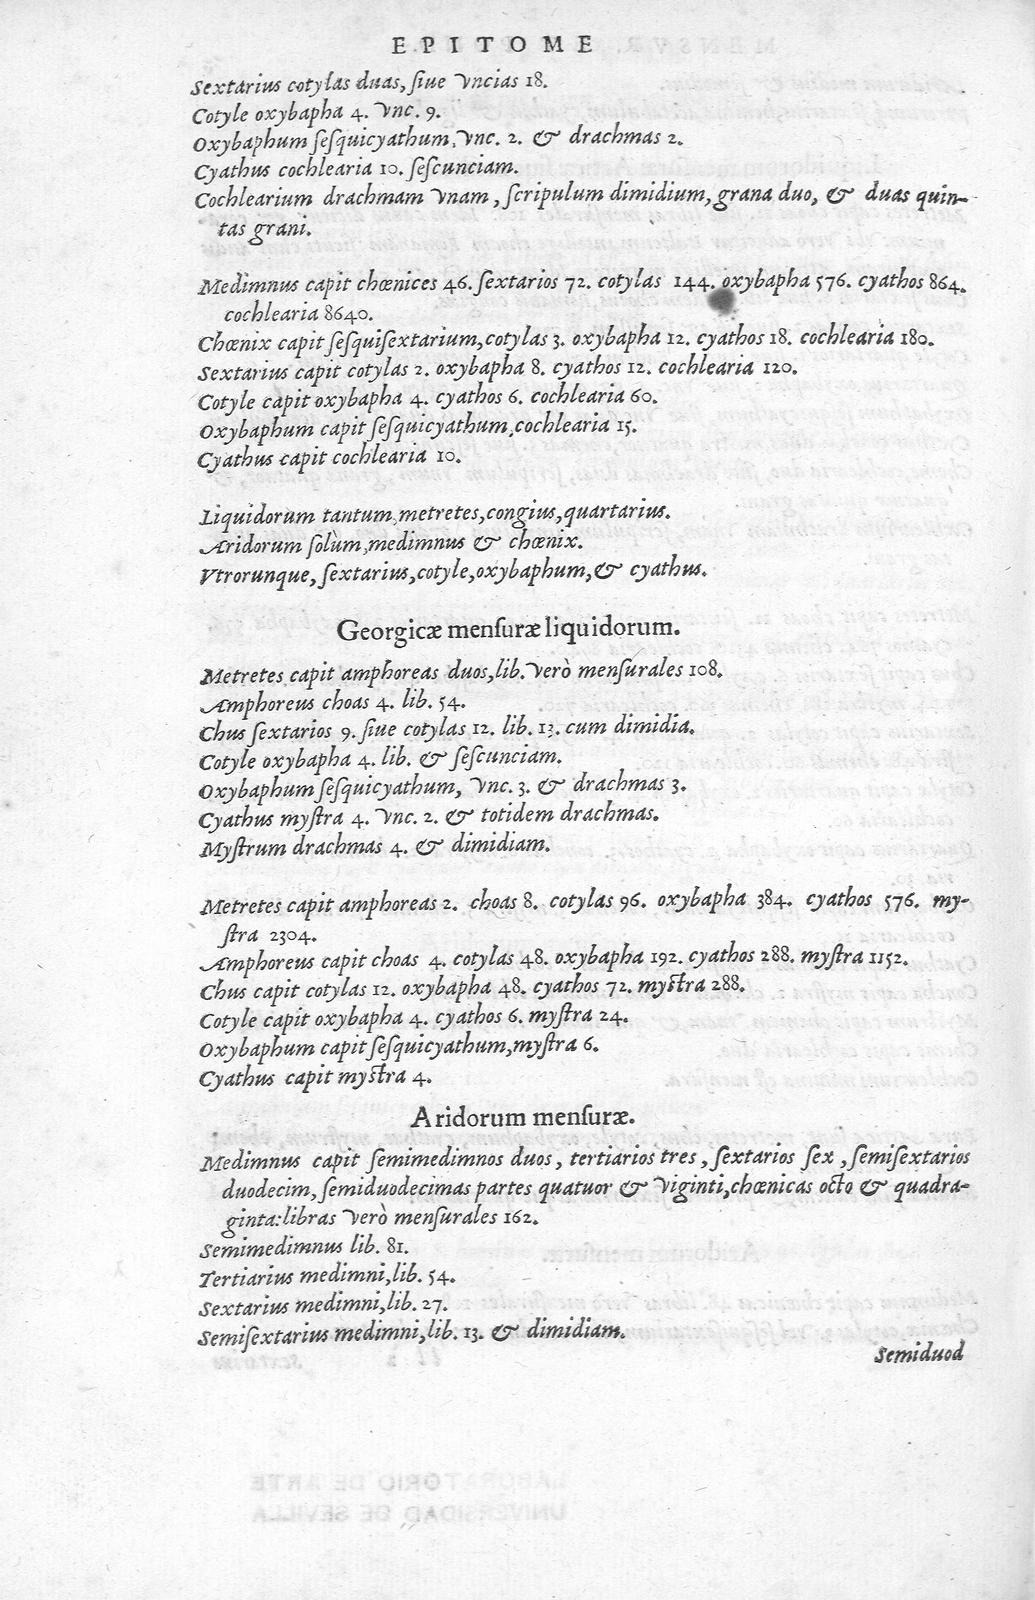 EPITOME
Sextarius cotylas duas, siue vncias 18.
Cotyle oxybapha 4. vnc. 9.
Oxybaphum sesquicyathum, vnc. 2. & drachmas 2.
Cyathus cochlearia 10. sescunciam.
Cochlearium drachmam vnam, scripulum dimidium, grana duo, & duas quin-
tas grani.
Medimnus capit chœnices 46. sextarios 72. cotylas 144. oxybapha 576. cyathos 864.
cochlearia 8640.
Chœnix capit sesquisextarium, cotylas 3. oxybapha 12. cyathos 18. cochlearia 180.
Sextarius capit cotylas 2. oxybapha 8. cyathos 12. cochlearia 120.
Cotyle capit oxybapha 4. cyathos 6. cochlearia 60.
Oxybaphum capit sesquicyathum, cochlearia 15.
Cyathus capit cochlearia 10.
Liquidorum tantum, metretes, congius, quartarius.
Aridorum solùm, medimnus & chœnix.
Vtrorunque, sextarius, cotyle, oxybaphum, & cyathus.
Georgicæ mensuræ liquidorum.
Metretes capit amphoreas duos, lib. verò mensurales 108.
Amphoreus choas 4. lib. 54.
Chus sextarios 9. siue cotylas 12. lib. 13. cum dimidia.
Cotyle oxybapha 4. lib. & sescunciam.
Oxybaphum sesquicyathum, vnc. 3. & drachmas 3.
Cyathus mystra 4. vnc. 2. & totidem drachmas.
Mystrum drachmas 4. & dimidiam.
Metretes capit amphoreas 2. choas 8. cotylas 96. oxybapha 384. cyathos 576. my-
stra 2304.
Amphoreus capit choas 4. cotylas 48. oxybapha 192. cyathos 288. mystra 1152.
Chus capit cotylas 12. oxybapha 48. cyathos 72. mystra 288.
Cotyle capit oxybapha 4. cyathos 6. mystra 24.
Oxybaphum capit sesquicyathum, mystra 6.
Cyathus capit mystra 4.
Aridorum mensuræ.
Medimnus capit semimedimnos duos, tertiarios tres, sextarios sex, semisextarios
duodecim, semiduodecimas partes quatuor & viginti, chœnicas octo & quadra-
ginta: libras verò mensurales 162.
Semimedimnus lib. 81.
Tertiarius medimni, lib. 54.
Sextarius medimni, lib. 27.
Semisextarius medimni, lib. 13. & dimidiam.
Semiduod
LABORATORIO DE ARTE
UNIVERSIDAD DE SEVILLA